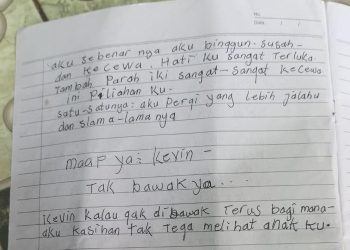 No.
Date
aku sebenar nya aku binggun-susah-
dan kecewa. Hati ku sangat Terluka.
Tambah Parah iki sangat-sangat kecewa
ini Piliahan ku.
satu-satunya: aku pergi yang lebih jalahu
dan slama-lama nya
maap ya: Kevin -
Tak bawak ya...
Kevin kalau gak di bawak Terus bagi mana-
aku kasihan tak Tega melihat anak ku.